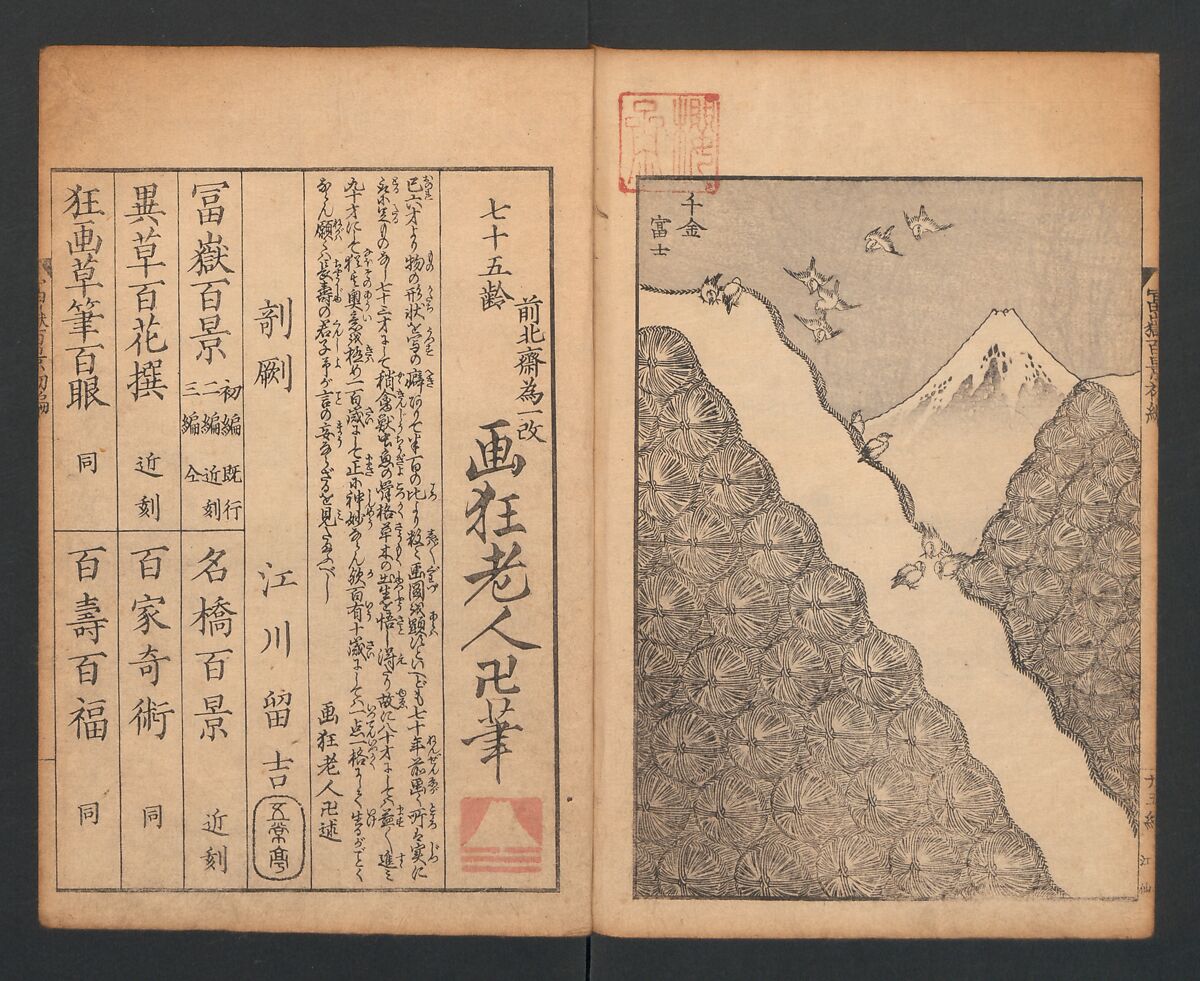 千金
富士
富嶽百景初編
七十五齢
前北齋為一改
画狂老人卍筆
己六才より物の形状を写の癖ありて半百の比より数々画図を顕すといへども七十年前画く所は実に
取に足ものなし七十三才にして稍禽獣虫魚の骨格草木の出生を悟し得たり故に八十才にしては益々進み
九十才にて猶其奥意を極め一百歳にして正に神妙ならん歟百有十歳にしては一点一格にして生るがごとく
ならん願くは長壽の君子予が言の妄ならざるを見たまふべし
画狂老人卍述
剞劂 江川留吉 五常亭
冨嶽百景 初編既行
二編近刻
三編仝
名橋百景 近刻
異草百花撰 近刻
百家奇術 同
狂画草筆百眼 同
百壽百福 同